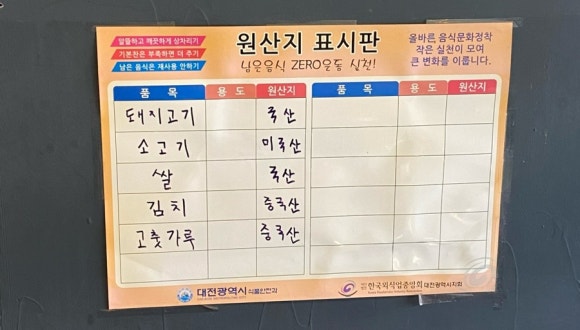 알뜰하고 깨끗하게 상차리기
기본찬은 부족하면 더 주기
남은 음식은 재사용 안하기
원산지 표시판
남은음식 ZERO운동 실천!
올바른 음식문화정착
작은 실천이 모여
큰 변화를 이룹니다.
품 목 용 도 원산지 품 목 용 도 원산지
돼지고기 국산
소고기 미국산
쌀 국산
김치 중국산
고춧가루 중국산
대전광역시 식품안전과
한국외식업중앙회 대전광역시지회